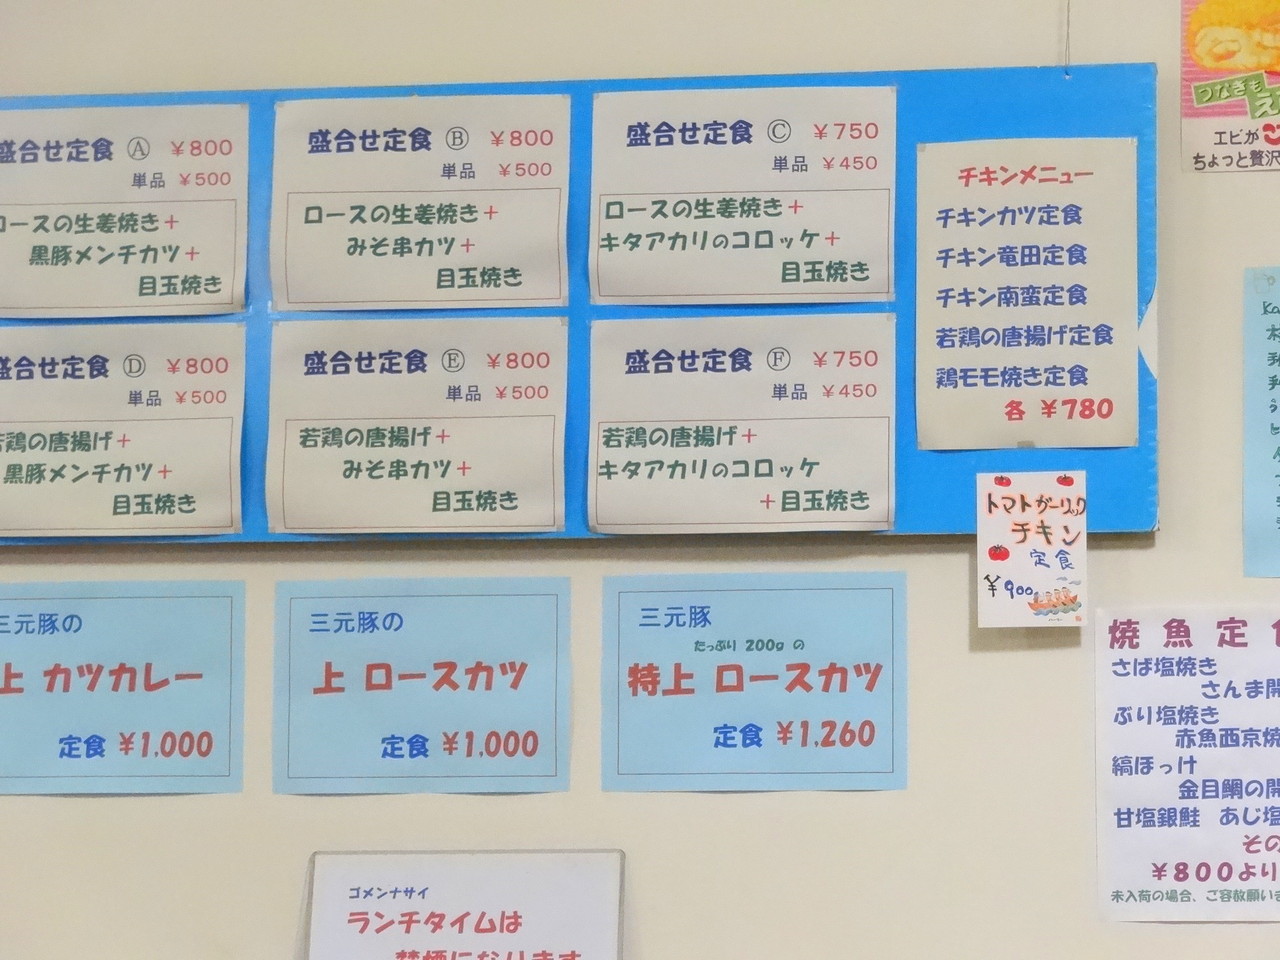 盛合せ定食 Ⓐ ￥800
単品 ￥500
ロースの生姜焼き+
黒豚メンチカツ+
目玉焼き
盛合せ定食 Ⓑ ￥800
単品 ￥500
ロースの生姜焼き+
みそ串カツ+
目玉焼き
盛合せ定食 Ⓒ ￥750
単品 ￥450
ロースの生姜焼き+
キタアカリのコロッケ+
目玉焼き
盛合せ定食 Ⓓ ￥800
単品 ￥500
若鶏の唐揚げ+
黒豚メンチカツ+
目玉焼き
盛合せ定食 Ⓔ ￥800
単品 ￥500
若鶏の唐揚げ+
みそ串カツ+
目玉焼き
盛合せ定食 Ⓕ ￥750
単品 ￥450
若鶏の唐揚げ+
キタアカリのコロッケ
+目玉焼き
チキンメニュー
チキンカツ定食
チキン竜田定食
チキン南蛮定食
若鶏の唐揚げ定食
鶏モモ焼き定食
各 ￥780
トマトガーリック
チキン
定食
￥900
三元豚の
上 カツカレー
定食 ￥1,000
三元豚の
上 ロースカツ
定食 ￥1,000
三元豚
たっぷり 200g の
特上 ロースカツ
定食 ￥1,260
つなぎも
エビが
ちょっと贅沢
焼魚定食
さば塩焼き
さんま開
ぶり塩焼き
赤魚西京焼
縞ほっけ
金目鯛の開
甘塩銀鮭 あじ塩
その
￥800より
未入荷の場合、ご容赦願いま
ゴメンナサイ
ランチタイムは
禁煙になります